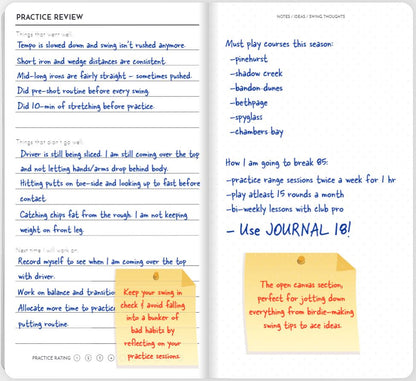 PRACTICE REVIEW
Things that went well:
Tempo is slowed down and swing isn't rushed anymore.
Short iron and wedge distances are consistent.
Mid-long irons are fairly straight - sometimes pushed.
Did pre-shot routine before every swing.
Did 10-min of stretching before practice.
Things that didn't go well:
Driver is still being sliced. I am still coming over the top
and not letting hands/arms drop behind body.
Hitting putts on toe-side and looking up to fast before
contact.
Catching chips fat from the rough. I am not keeping
weight on front leg.
Next time I will work on:
Record myself to see when I am coming over the top
with driver.
Work on balance and transition
Allocate more time to practice
putting routine.
PRACTICE RATING 1 2 3 4
Keep your swing in
check & avoid falling
into a bunker of
bad habits by
reflecting on your
practice sessions.
NOTES / IDEAS / SWING THOUGHTS
Must play courses this season:
-pinehurst
-shadow creek
-bandon dunes
-bethpage
-spyglass
-chambers bay
How I am going to break 85:
-practice range sessions twice a week for 1 hr
-play atleast 15 rounds a month
-bi-weekly lessons with club pro
- Use JOURNAL 18!
The open canvas section,
perfect for jotting down
everything from birdie-making
swing tips to ace ideas.